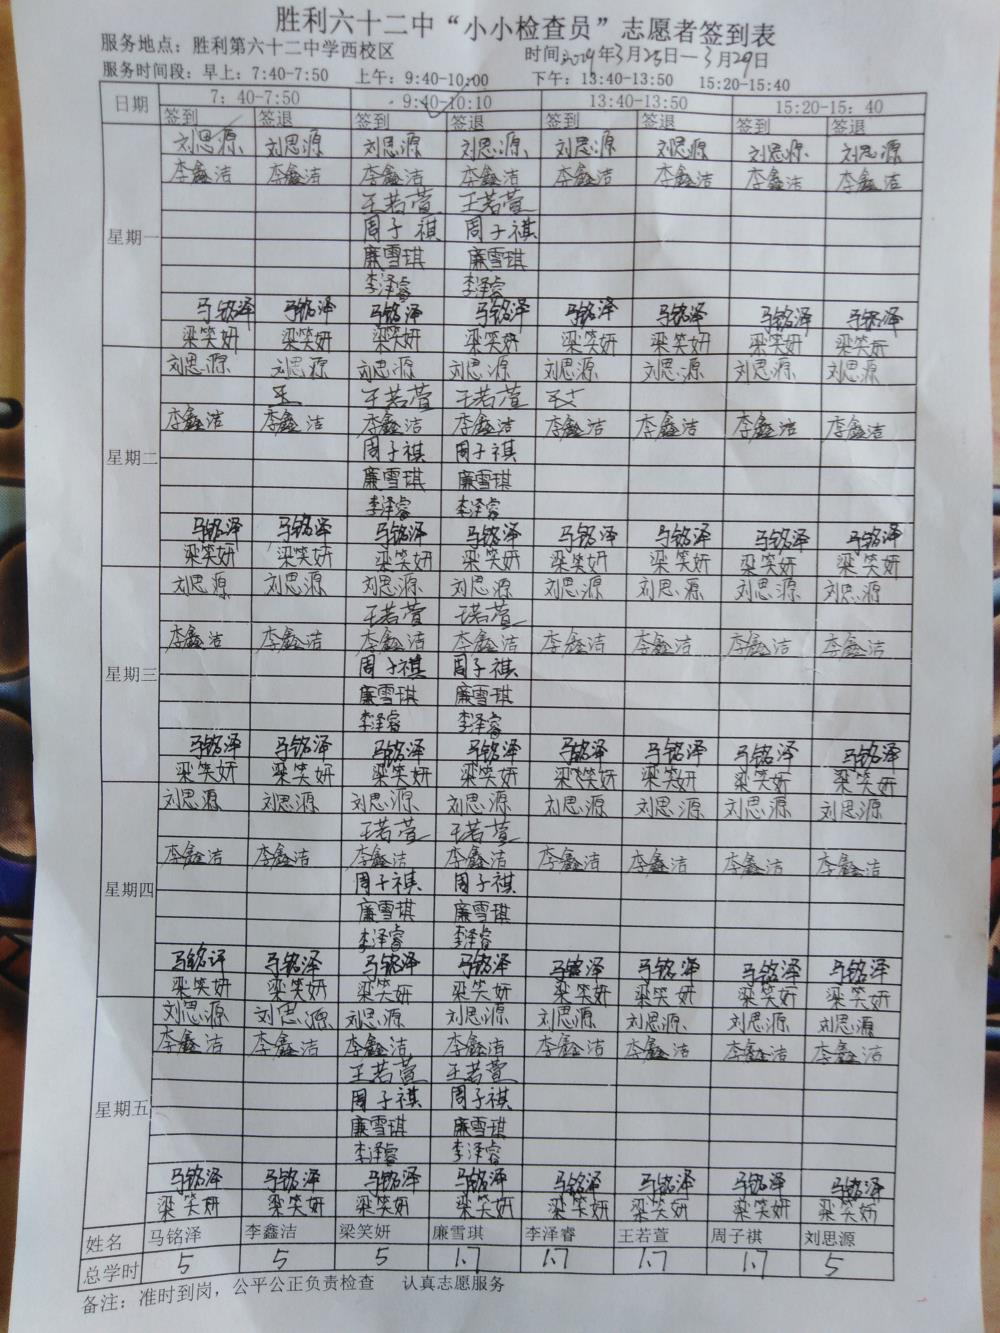 胜利六十二中“小小检查员”志愿者签到表
服务地点：胜利第六十二中学西校区 时间2019年3月25日—3月29日
服务时间段：早上：7:40-7:50 上午：9:40-10:00 下午：13:40-13:50 15:20-15:40
日期 7：40-7:50 9:40-10:10 13:40-13:50 15:20-15：40
签到 签退 签到 签退 签到 签退 签到 签退
刘思源 刘思源 刘思源 刘思源 刘思源 刘思源 刘思源 刘思源
李鑫洁 李鑫洁 李鑫洁 李鑫洁 李鑫洁 李鑫洁 李鑫洁 李鑫洁
王若萱 王若萱
周子祺 周子祺
星期一
廉雪琪 廉雪琪
李泽睿 李泽睿
马铭泽 马铭泽 马铭泽 马铭泽 马铭泽 马铭泽 马铭泽 马铭泽
梁笑妍 梁笑妍 梁笑妍 梁笑妍 梁笑妍 梁笑妍 梁笑妍 梁笑妍
刘思源 刘思源 刘思源 刘思源 刘思源 刘思源 刘思源 刘思源
王若萱 王若萱
李鑫洁 李鑫洁 李鑫洁 李鑫洁 李鑫洁 李鑫洁 李鑫洁 李鑫洁
周子祺 周子祺
星期二
廉雪琪 廉雪琪
李泽睿 李泽睿
马铭泽 马铭泽 马铭泽 马铭泽 马铭泽 马铭泽 马铭泽 马铭泽
梁笑妍 梁笑妍 梁笑妍 梁笑妍 梁笑妍 梁笑妍 梁笑妍 梁笑妍
刘思源 刘思源 刘思源 刘思源 刘思源 刘思源 刘思源 刘思源
王若萱 王若萱
李鑫洁 李鑫洁 李鑫洁 李鑫洁 李鑫洁 李鑫洁 李鑫洁 李鑫洁
周子祺 周子祺
星期三
廉雪琪 廉雪琪
李泽睿 李泽睿
马铭泽 马铭泽 马铭泽 马铭泽 马铭泽 马铭泽 马铭泽 马铭泽
梁笑妍 梁笑妍 梁笑妍 梁笑妍 梁笑妍 梁笑妍 梁笑妍 梁笑妍
刘思源 刘思源 刘思源 刘思源 刘思源 刘思源 刘思源 刘思源
王若萱 王若萱
李鑫洁 李鑫洁 李鑫洁 李鑫洁 李鑫洁 李鑫洁 李鑫洁 李鑫洁
周子祺 周子祺
星期四
廉雪琪 廉雪琪
李泽睿 李泽睿
马铭泽 马铭泽 马铭泽 马铭泽 马铭泽 马铭泽 马铭泽 马铭泽
梁笑妍 梁笑妍 梁笑妍 梁笑妍 梁笑妍 梁笑妍 梁笑妍 梁笑妍
刘思源 刘思源 刘思源 刘思源 刘思源 刘思源 刘思源 刘思源
李鑫洁 李鑫洁 李鑫洁 李鑫洁 李鑫洁 李鑫洁 李鑫洁 李鑫洁
王若萱 王若萱
周子祺 周子祺
星期五
廉雪琪 廉雪琪
李泽睿 李泽睿
马铭泽 马铭泽 马铭泽 马铭泽 马铭泽 马铭泽 马铭泽 马铭泽
梁笑妍 梁笑妍 梁笑妍 梁笑妍 梁笑妍 梁笑妍 梁笑妍 梁笑妍
姓名 马铭泽 李鑫洁 梁笑妍 廉雪琪 李泽睿 王若萱 周子祺 刘思源
总学时 5 5 5 1.7 1.7 1.7 1.7 5
备注：准时到岗，公平公正负责检查 认真志愿服务